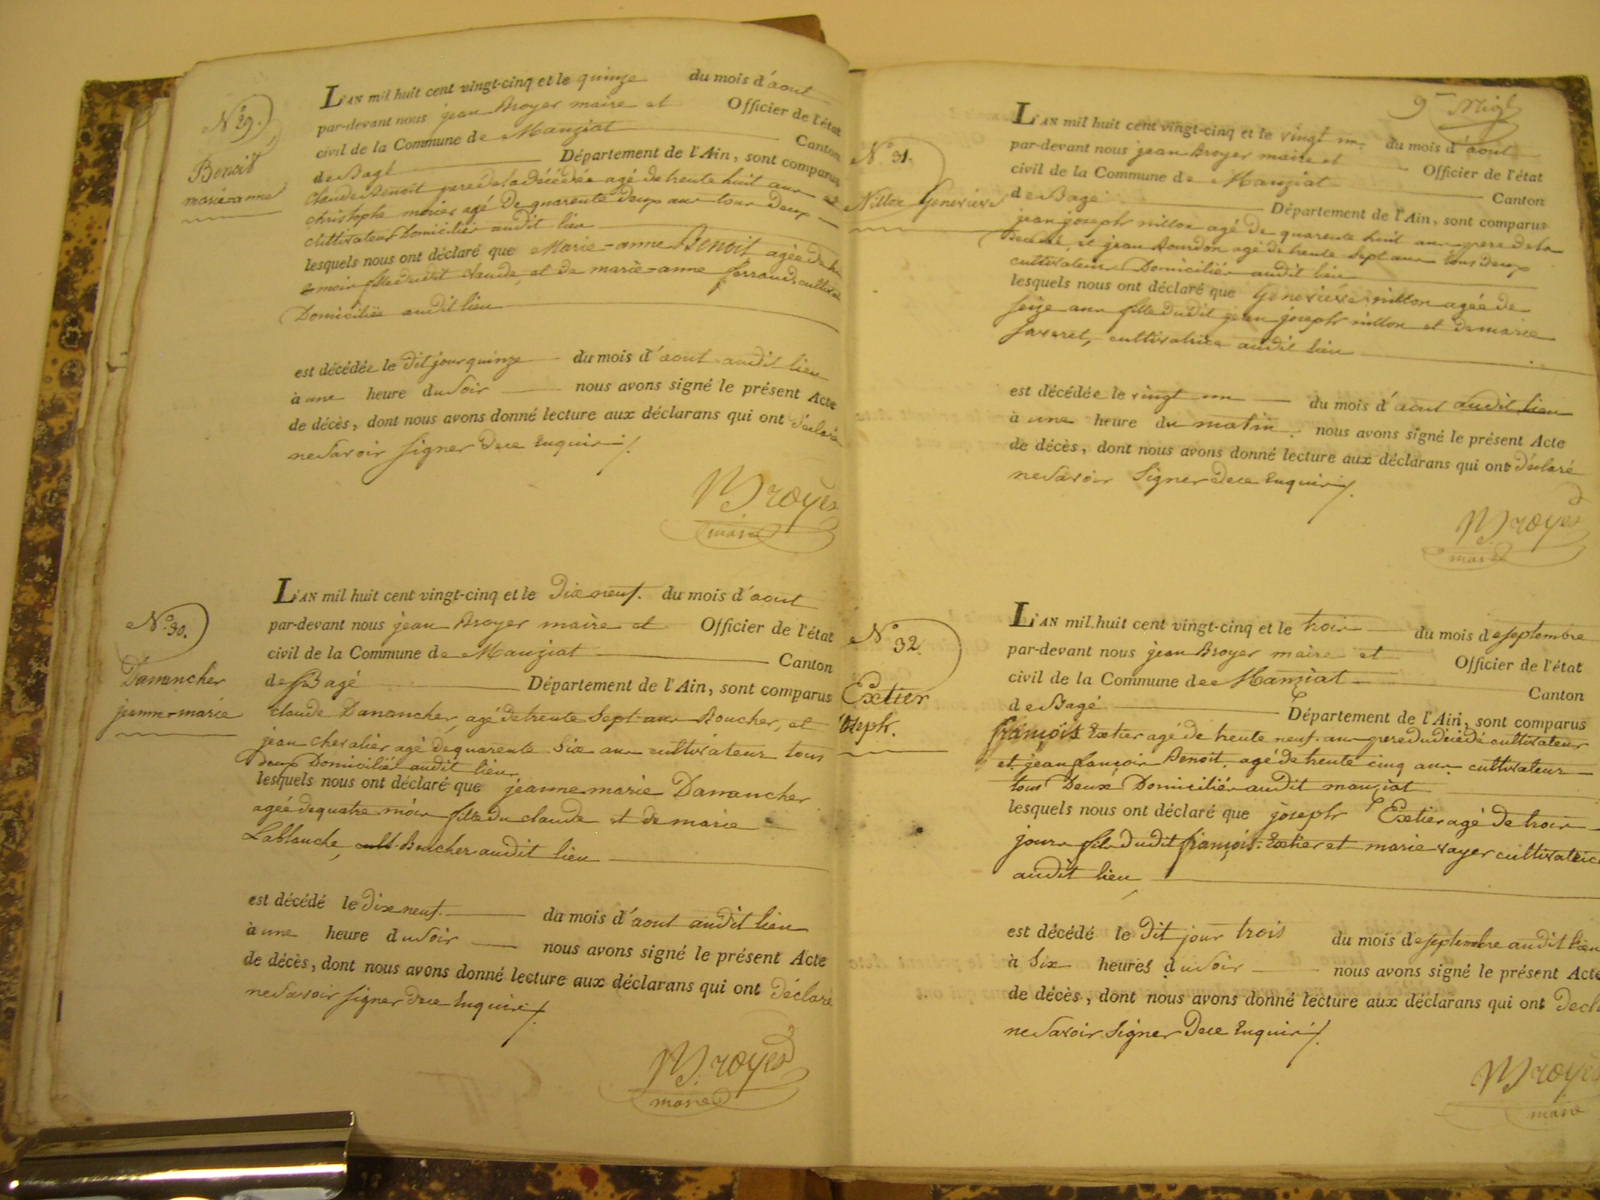 N.º 29.
Benoit
marie-anne
L'AN mil huit cent vingt-cinq et le quinze du mois d'aout
par-devant nous jean Broyer maire et Officier de l'état
civil de la Commune de Manziat Canton
de Bagé Département de l'Ain, sont comparus
claude Benoit pere de la décédée agé de trente huit ans et
christophe agé de quarente deux ans tous deux
cultivateurs Domiciliés audit lieu
lesquels nous ont déclaré que Marie-anne Benoit agée de
mois fille dudit claude, et de marie-anne ferrand,
Domiciliée audit lieu
est décédée le dit jour quinze du mois d'aout audit lieu
à une heure du soir nous avons signé le présent Acte
de décès, dont nous avons donné lecture aux déclarans qui ont déclaré
ne savoir signer de ce enquis ./.
Broyer
maire
N.º 30.
Damancher
jeanne-marie
L'AN mil huit cent vingt-cinq et le Dix neuf. du mois d'aout
par-devant nous jean Broyer maire et Officier de l'état
civil de la Commune de Manziat Canton
de Bagé Département de l'Ain, sont comparus
claude Danancher, agé de trente sept ans Boucher, et
jean chevalier agé de quarente six ans cultivateur tous
deux Domiciliés audit lieu
lesquels nous ont déclaré que jeanne marie Danancher
agée de quatre mois fille du claude et de marie
Lablanche, Boucher audit lieu
est décédé le dix neuf. du mois d'aout audit lieu
à une heure du soir nous avons signé le présent Acte
de décès, dont nous avons donné lecture aux déclarans qui ont déclaré
ne savoir signer de ce enquis ./.
Broyer
maire
9
N.º 31.
Nillon Genevieve
L'AN mil huit cent vingt-cinq et le vingt un. du mois d'aout
par-devant nous jean Broyer maire et Officier de l'état
civil de la Commune de Manziat Canton
de Bagé Département de l'Ain, sont comparus
jean joseph nillon agé de quarente huit ans pere de la
et jean Bourdon agé de trente sept ans tous deux
cultivateurs Domiciliés audit lieu
lesquels nous ont déclaré que Genevieve nillon agée de
seize ans fille dudit jean joseph nillon et de marie
favaret, cultivatrice audit lieu
est décédée le vingt un du mois d'aout audit lieu
à une heure du matin. nous avons signé le présent Acte
de décès, dont nous avons donné lecture aux déclarans qui ont déclaré
ne savoir signer de ce enquis ./.
Broyer
maire
N.º 32.
Extier
joseph.
L'AN mil huit cent vingt-cinq et le trois du mois de septembre
par-devant nous jean Broyer maire et Officier de l'état
civil de la Commune de Manziat Canton
de Bagé Département de l'Ain, sont comparus
françois Extier agé de trente neuf. ans pere du décédé cultivateur
et jean françois Benoit. agé de trente cinq ans. cultivateur
tous deux Domiciliés audit manziat
lesquels nous ont déclaré que joseph Extier agé de trois
jours fils dudit françois. Extier et marie rayer cultivatrice
audit lieu
est décédé le dit jour trois du mois de septembre audit lieu
à six heures du soir nous avons signé le présent Acte
de décès, dont nous avons donné lecture aux déclarans qui ont
ne savoir signer de ce enquis ./.
Broyer
maire